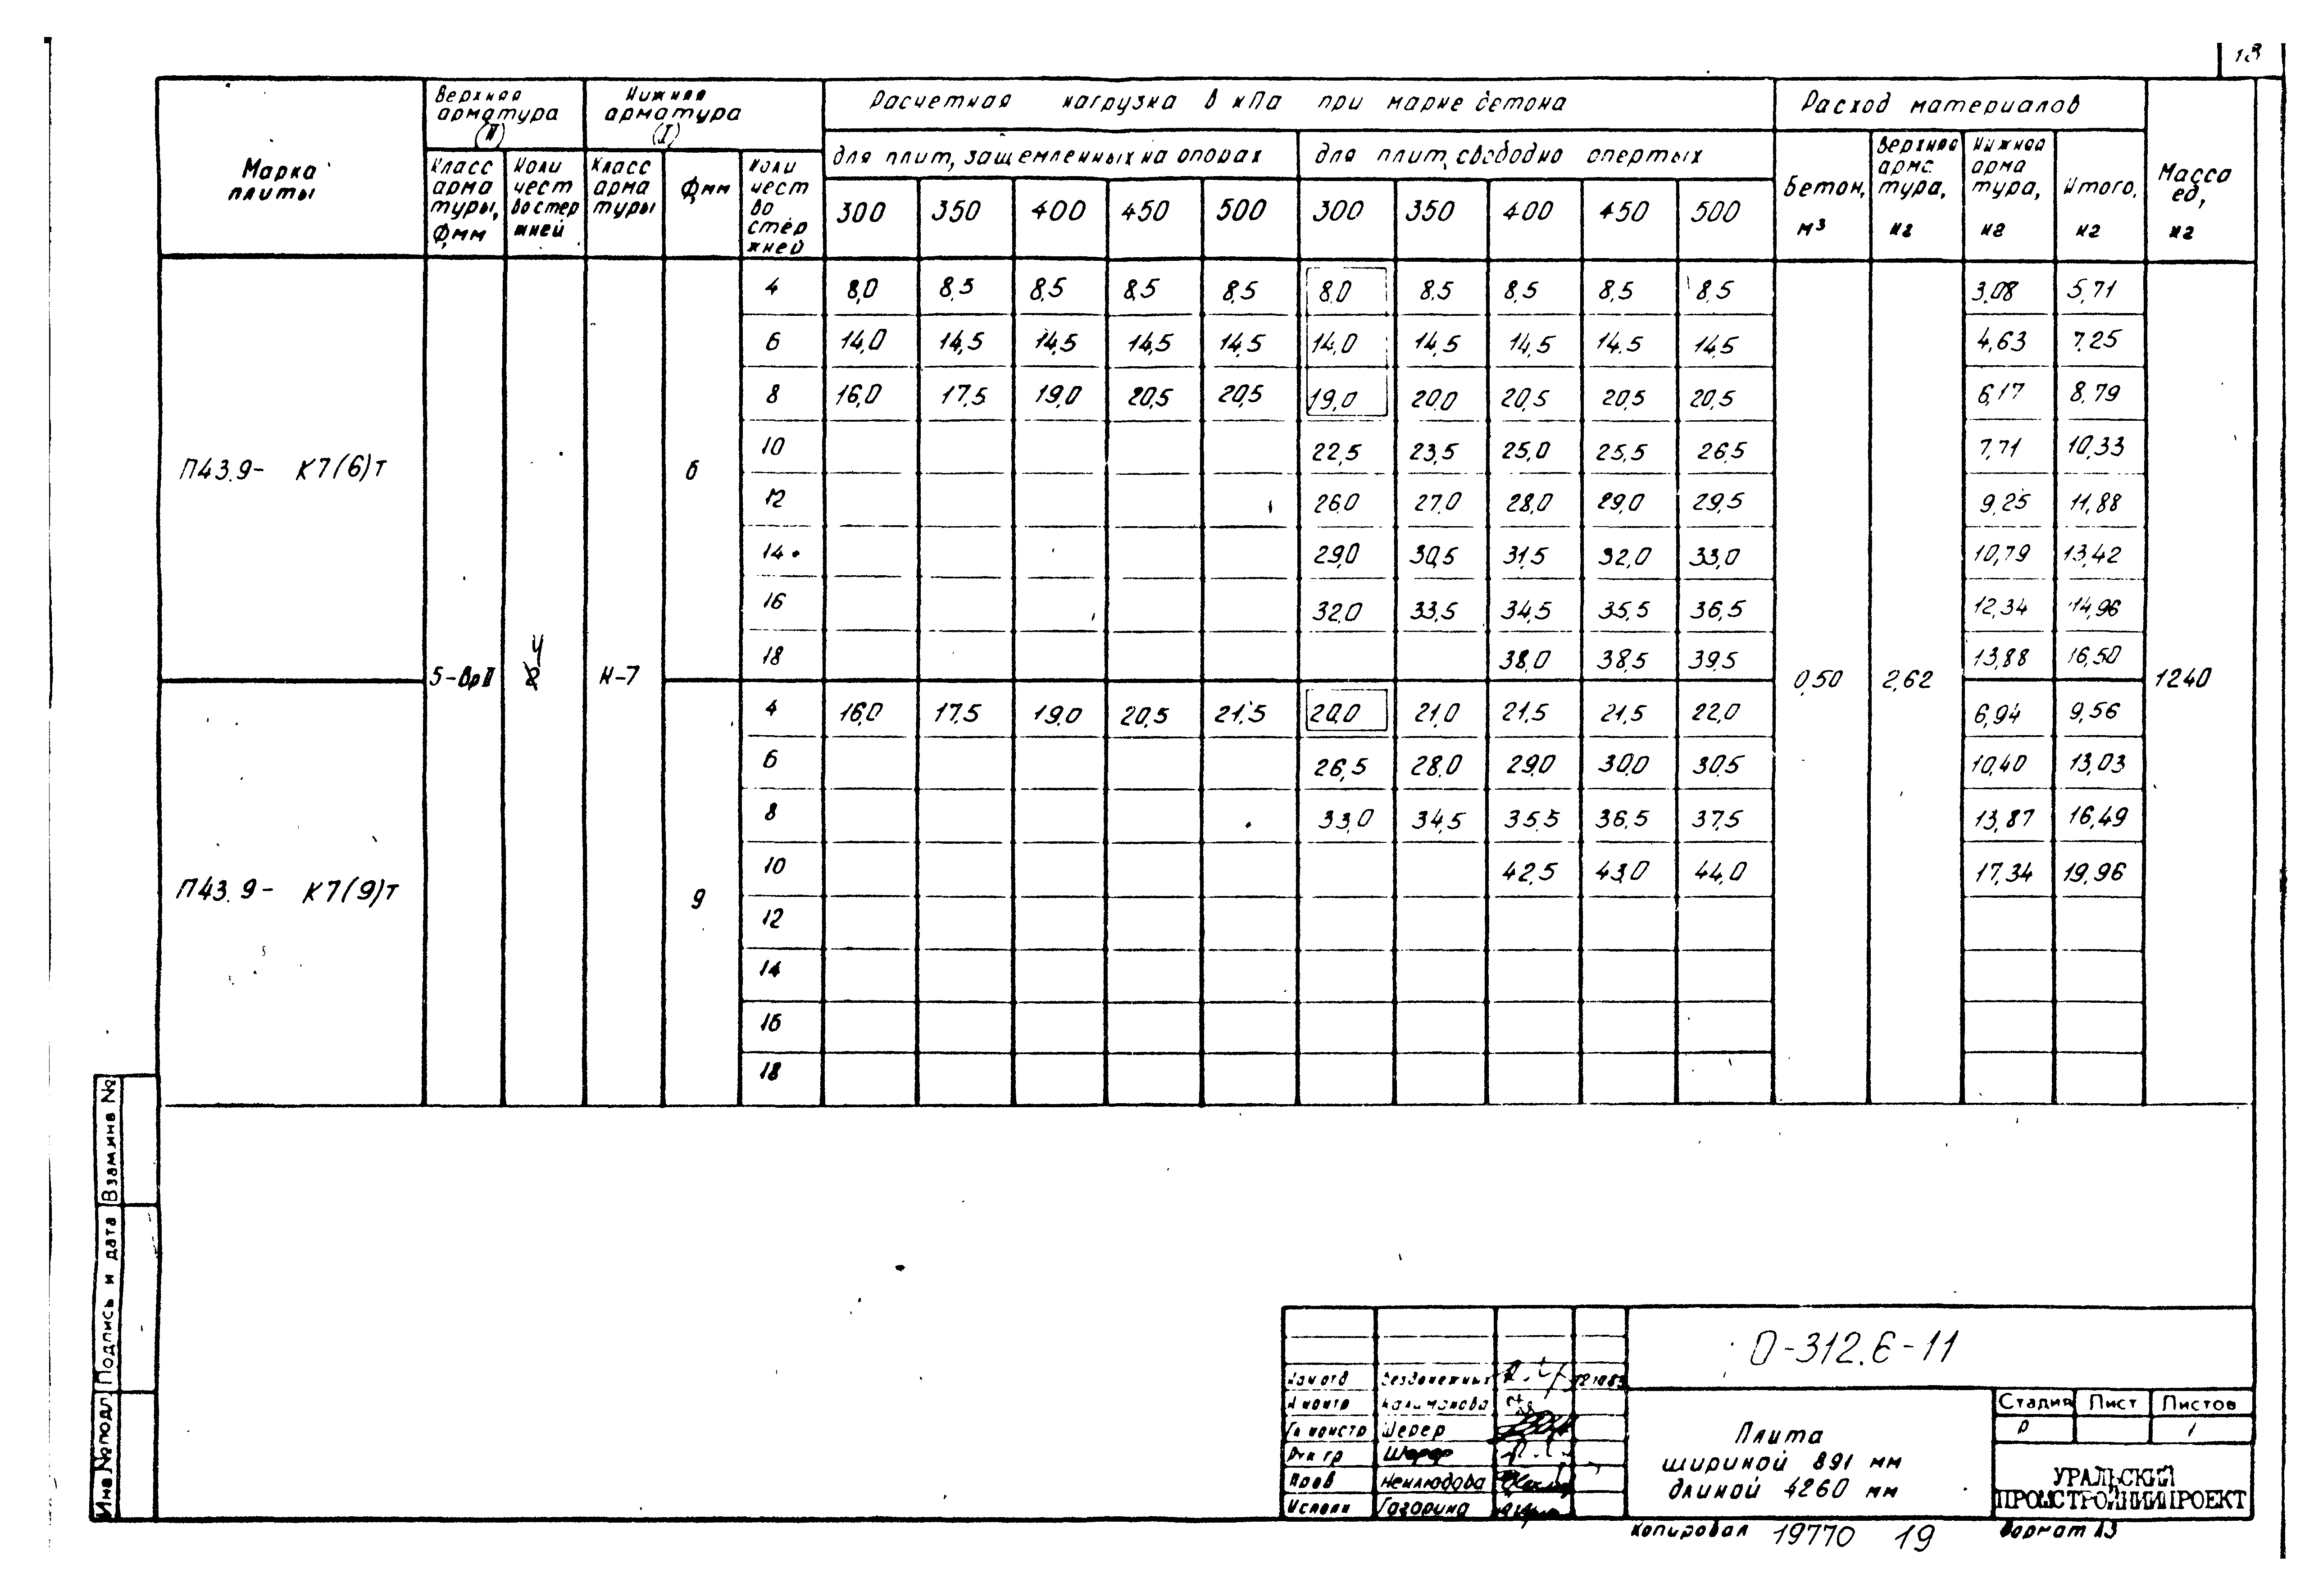 18
Марка плиты
Верхняя арматура (II)
Нижняя арматура (I)
Расчетная нагрузка в кПа при марке бетона
Расход материалов
Масса ед, кг
Класс арматуры, Фмм
Количество стержней
Класс арматуры
Фмм
Количество стержней
для плит, защемленных на опорах
для плит, свободно опертых
Бетон, м³
Верхняя арматура, кг
Нижняя арматура, кг
Итого, кг
300 350 400 450 500 300 350 400 450 500
4 8,0 8,5 8,5 8,5 8,5 8,0 8,5 8,5 8,5 8,5 3,08 5,71
6 14,0 14,5 14,5 14,5 14,5 14,0 14,5 14,5 14,5 14,5 4,63 7,25
8 16,0 17,5 19,0 20,5 20,5 19,0 20,0 20,5 20,5 20,5 6,17 8,79
П43.9- К7(6)т 6
10 22,5 23,5 25,0 25,5 26,5 7,71 10,33
12 26,0 27,0 28,0 29,0 29,5 9,25 11,88
14 29,0 30,5 31,5 32,0 33,0 10,79 13,42
16 32,0 33,5 34,5 35,5 36,5 12,34 14,96
18 38,0 38,5 39,5 13,88 16,50
5-ВрII 4 К-7 0,50 2,62 1240
4 16,0 17,5 19,0 20,5 21,5 20,0 21,0 21,5 21,5 22,0 6,94 9,56
6 26,5 28,0 29,0 30,0 30,5 10,40 13,03
8 33,0 34,5 35,5 36,5 37,5 13,87 16,49
10 42,5 43,0 44,0 17,34 19,96
П43.9- К7(9)т 9
12
14
16
18
Инв № подл Подпись и дата Взам инв №
О-312.6-11
Нач отд Безденежных
Н контр
Гл констр Шерер
Рук гр Шерер
Пров Неклюдова
Исполн Гагарина
Плита
шириной 891 мм
длиной 4260 мм
Стадия Лист Листов
Р 1
УРАЛЬСКИЙ
ПРОМСТРОЙНИИПРОЕКТ
Копировал 19770 19 Формат А3